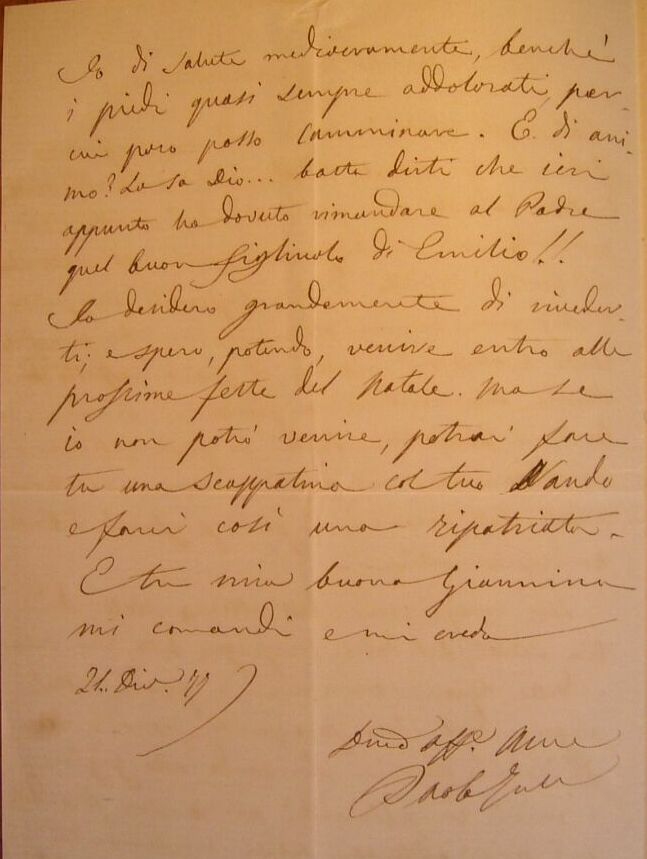 Io di salute mediocremente, benché
i piedi quasi sempre addolorati, per
cui poco posso camminare. E di ani-
mo? Lo sa Dio... basta dirti che ieri
appunto ho dovuto rimandare al Padre
quel buon figliuolo di Emilio!!
Io desidero grandemente di riveder-
ti; e spero, potendo, venire entro alle
prossime feste del Natale. Ma se
io non potrò venire, potrai fare
tu una scappatina col tuo Nando
e farei così una ripatriata.
E tu mia buona Giannina
mi comandi e mi creda
21. Dic.
aff.